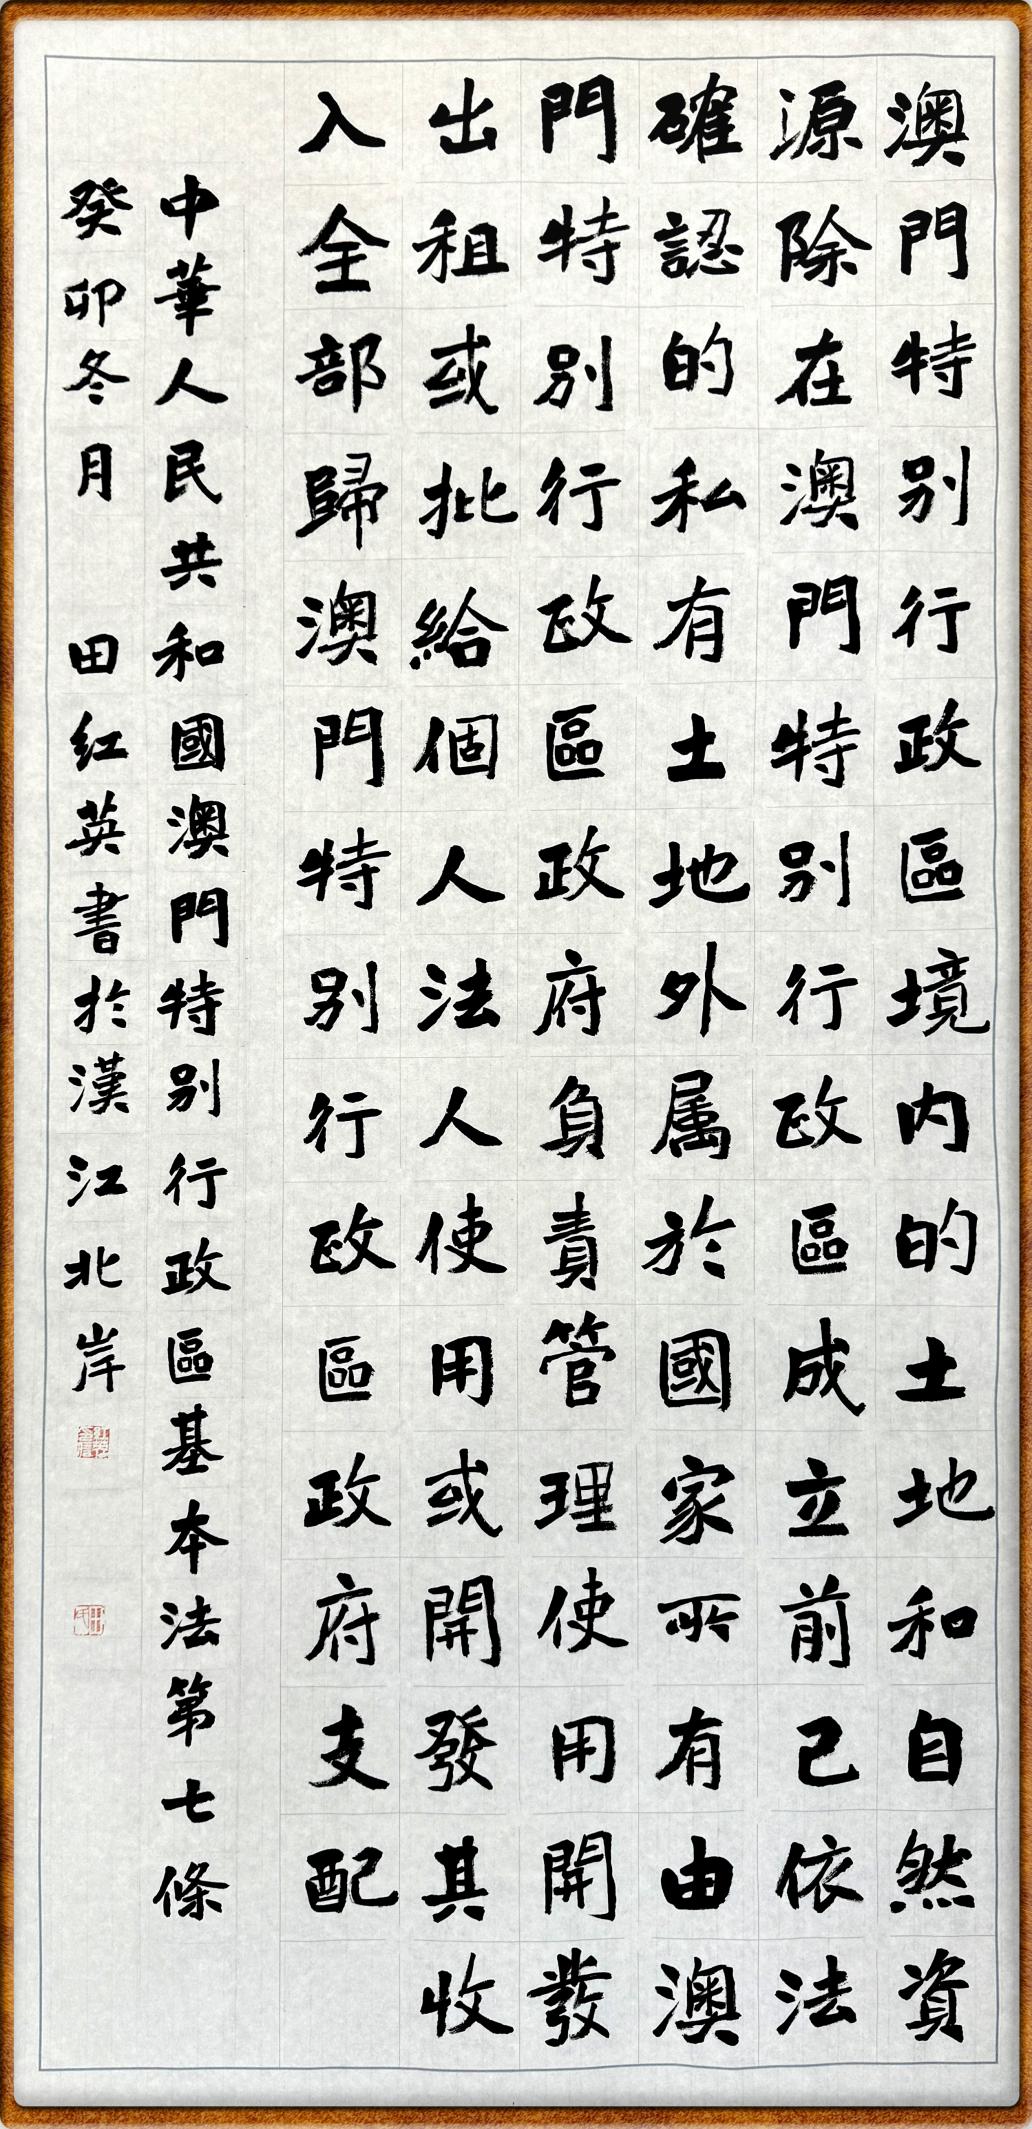 澳門特别行政區境内的土地和自然資
源除在澳門特别行政區成立前已依法
確認的私有土地外属於國家所有由澳
門特别行政區政府負責管理使用開發
出租或批給個人法人使用或開發其收
入全部歸澳門特别行政區政府支配
中華人民共和國澳門特别行政區基本法第七條
癸卯冬月 田紅英書於漢江北岸